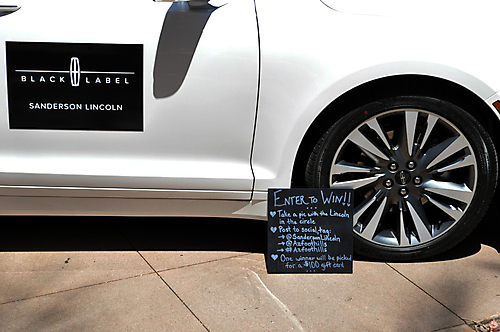 BLACK LABEL
SANDERSON LINCOLN
ENTER TO WIN!!
Take a pic with the Lincoln
in the circle
Post to social, tag:
→ @SandersonLincoln
→ @Azfoothills
→ #Azfoothills
One winner will be picked
for a $100 gift card